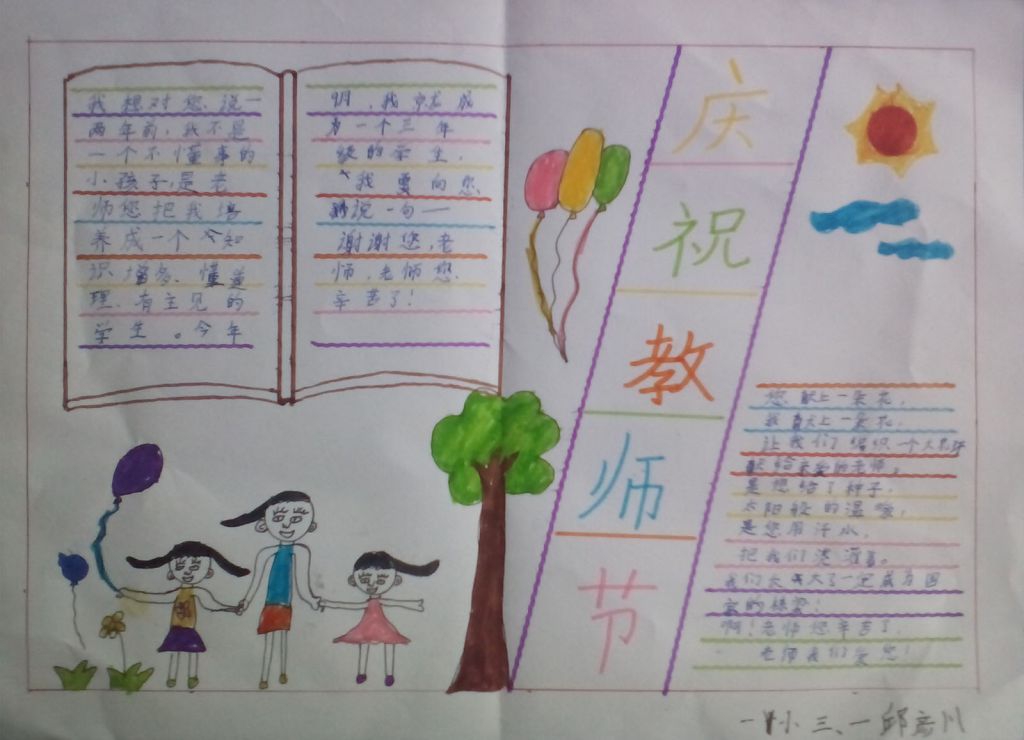 我想对您说一
两年前，我不是
一个不懂事的
小孩子，是老
师您把我培
养成一个知
识增多、懂道
理、有主见的
学生。今年
9月，我就成
为一个三年
级的学生，
我要向您
说一句——
谢谢您，老
师，老师您
辛苦了！
庆
祝
教
师
节
您献上一朵花，
我献上一朵花，
让我们组织一个大花环
献给亲爱的老师，
是您给了种子，
太阳般的温暖，
是您用汗水，
把我们浇灌着。
我们长大了一定成为国
家的栋梁！
啊！老师您辛苦了，
老师我们爱您！
一小三、一邱彦川